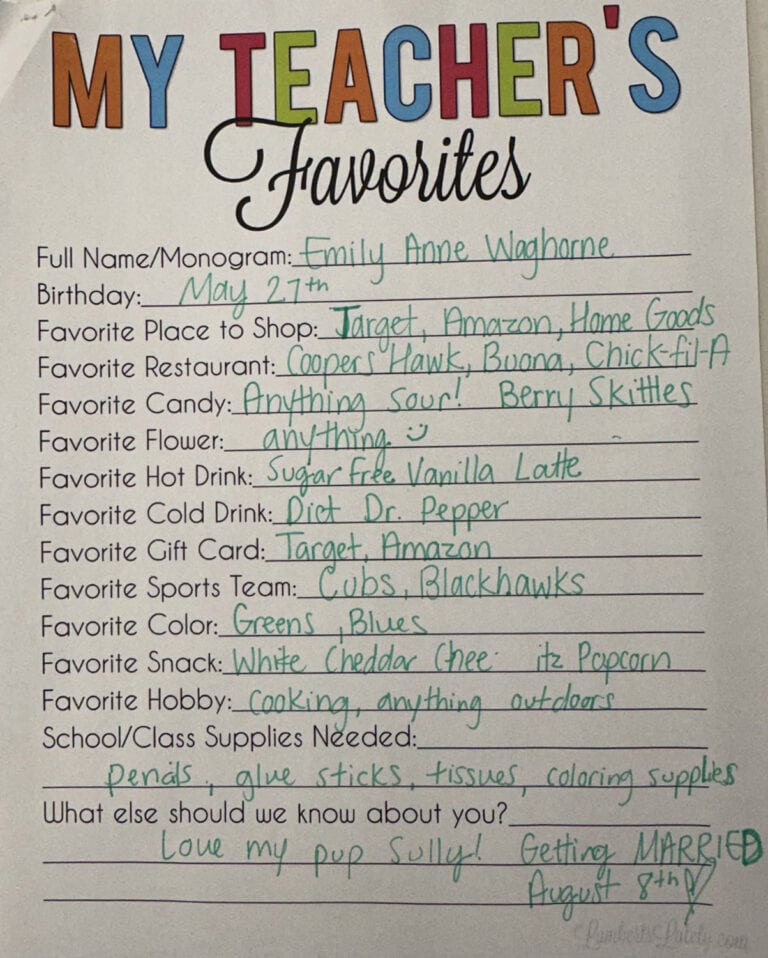 MY TEACHER'S
Favorites
Full Name/Monogram: Emily Anne Waghorne
Birthday: May 27th
Favorite Place to Shop: Target, Amazon, Home Goods
Favorite Restaurant: Coopers' Hawk, Buona, Chick-fil-A
Favorite Candy: Anything sour! Berry Skittles
Favorite Flower: anything :)
Favorite Hot Drink: Sugar free Vanilla Latte
Favorite Cold Drink: Diet Dr. Pepper
Favorite Gift Card: Target, Amazon
Favorite Sports Team: Cubs, Blackhawks
Favorite Color: Greens, Blues
Favorite Snack: White Cheddar Chee itz Popcorn
Favorite Hobby: cooking, anything outdoors
School/Class Supplies Needed:
pencils, glue sticks, tissues, coloring supplies
What else should we know about you?
Love my pup Sully! Getting MARRIED
August 8th
LambertsLately.com